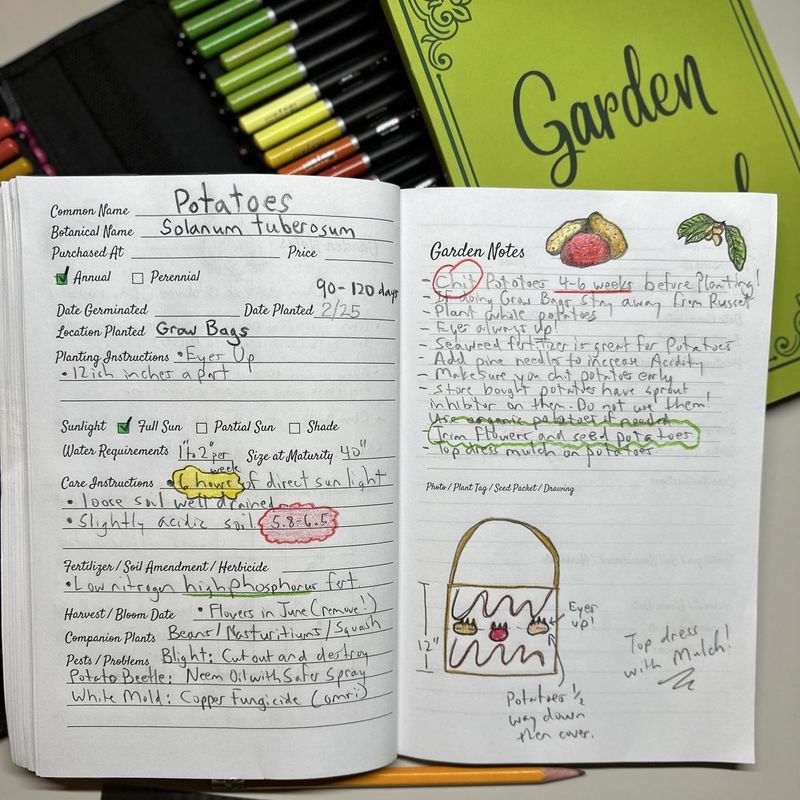 Garden
Common Name Potatoes
Botanical Name Solanum tuberosum
Purchased At Price
Annual Perennial
90-120 days
Date Germinated Date Planted 2/25
Location Planted Grow Bags
Planting Instructions • Eyes Up
• 12ish inches apart
Sunlight Full Sun Partial Sun Shade
Water Requirements 1" to 2" per week Size at Maturity 40"
Care Instructions • 6 hours of direct sun light
• loose soil well drained
• Slightly acidic soil 5.8-6.5
Fertilizer / Soil Amendment / Herbicide
• Low nitrogen high phosphorus fert
Harvest / Bloom Date • Flowers in June (remove!)
Companion Plants Beans/Nasturitiums/Squash
Pests / Problems Blight: Cut out and destroy
Potato Beetle: Neem Oil with Safer Spray
White Mold: Copper Fungicide (omri)
Garden Notes
- Chit Potatoes 4-6 weeks before Planting!
- If doing Grow Bags stay away from Russet
- Plant whole potatoes
- Eyes always up!
- Seaweed fertilizer is great for Potatoes
- Add pine needles to increase Acidity
- Make sure you chit potatoes early
- Store bought potatoes have sprout
inhibitor on them. Do not use them!
Use organic potatoes if needed
Trim Flowers and seed potatoes
- Top dress mulch on potatoes
Photo / Plant Tag / Seed Packet / Drawing
12"
Eyes
up!
Potatoes 1/2
way down
then cover.
Top dress
with Mulch!